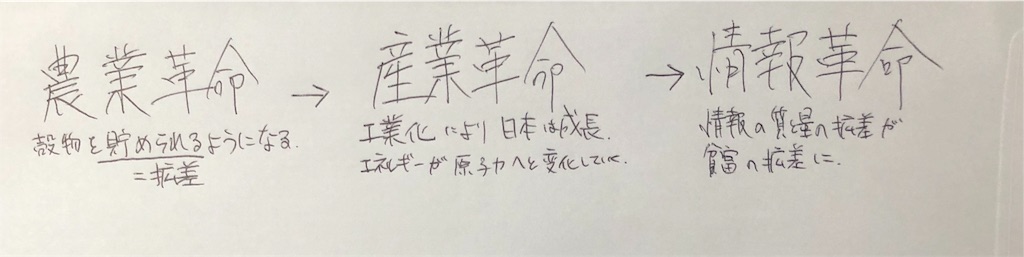 農業革命 → 産業革命 → 情報革命
穀物を貯められるようになる.
=拡差
工業化により日本は成長.
エネルギーが原子力へと変化していく.
情報の質量の拡差が
貧富の拡差に.